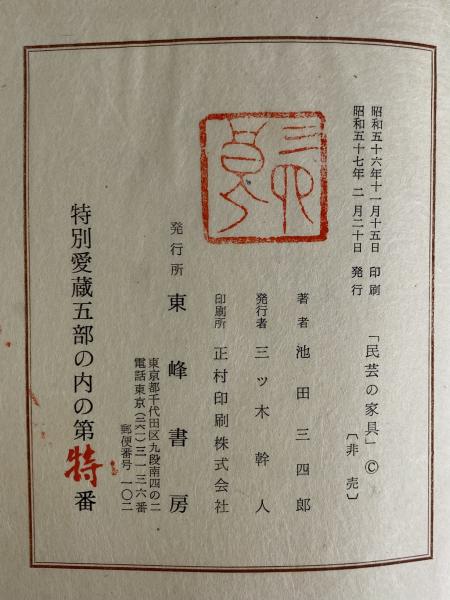 昭和五十六年十一月十五日 印刷
昭和五十七年二月二十日 発行
「民芸の家具」©
〔非売〕
著者 池田三四郎
発行者 三ツ木幹人
印刷所 正村印刷株式会社
発行所 東峰書房
東京都千代田区九段南四の二
電話東京(二六一)三一三六番
郵便番号 一〇二
特別愛蔵五部の内の第特番
三四郎